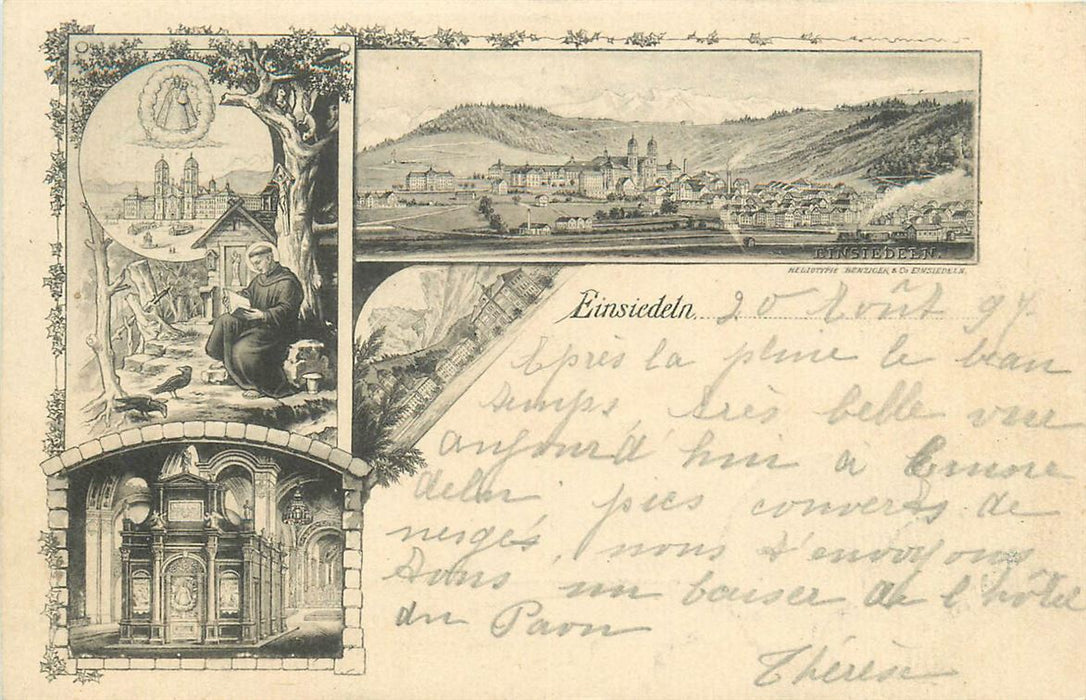 EINSIEDELN.
HELIOTYPIE BENZIGER & Co EINSIEDELN.
Einsiedeln, 20 Août 97
Après la pluie le beau
temps, très belle vue
aujourd'hui a
deln, pics converts de
neiges, nous t'envoyons
tous un baiser de l'hôtel
du Paon
Thérèse